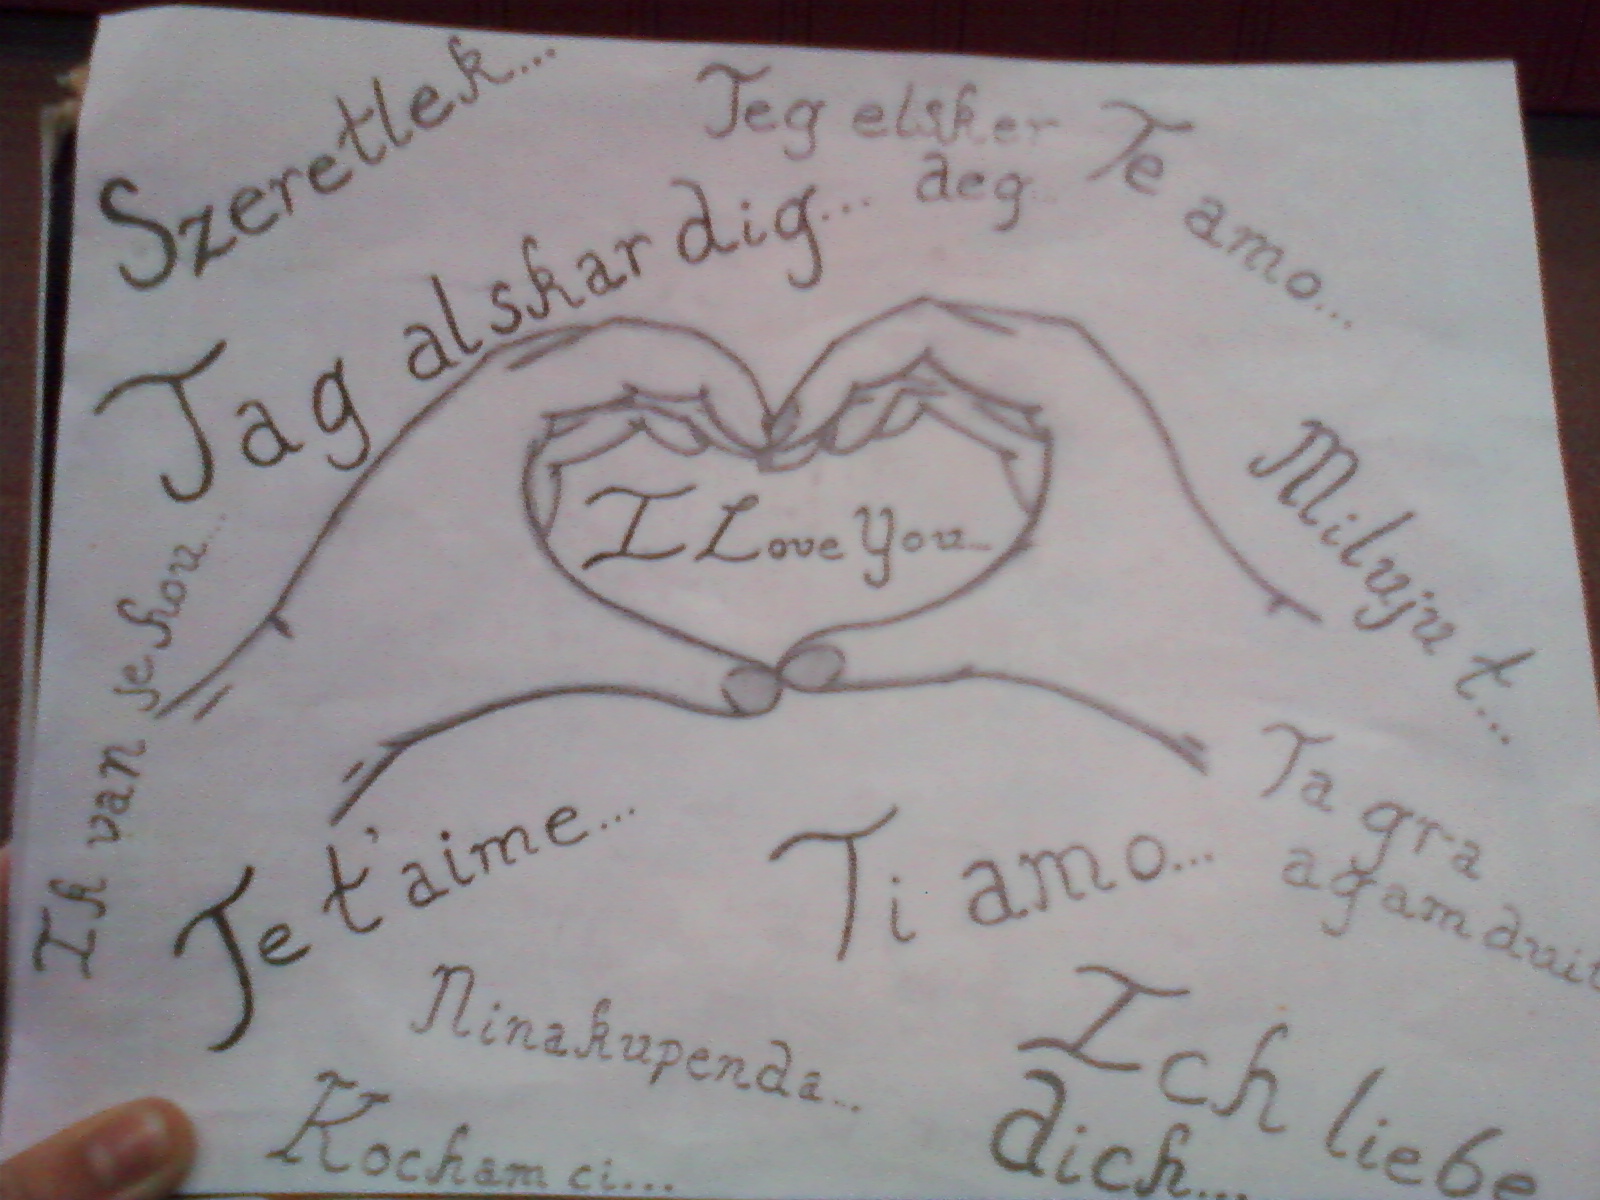 Szeretlek...
Jeg elsker
deg...
Te amo...
Jag alskar dig...
I Love You...
Miluju t...
Ik van je hou...
Je t'aime...
Ti amo...
Ta gra
agam duit
Ninakupenda...
Ich liebe
dich...
Kocham ci...